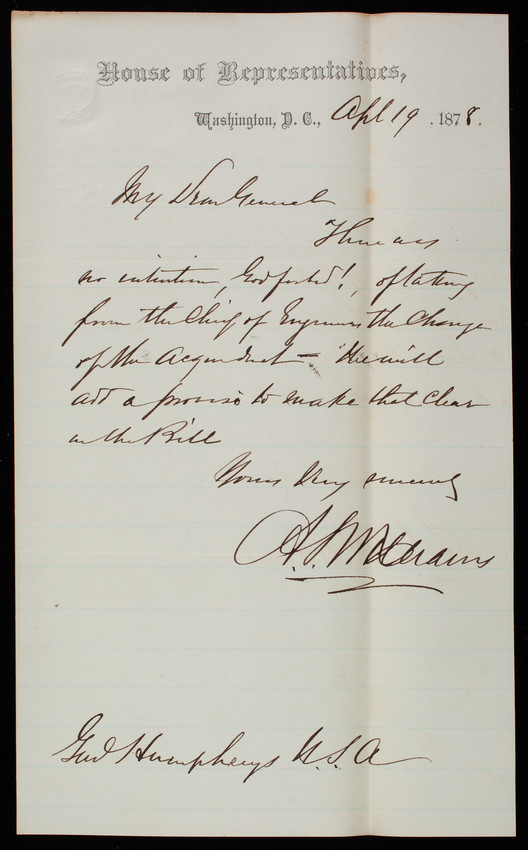 House of Representatives,
Washington, D. C., Apl 19 . 1878.
My Dear General
There was
no intention, God forbid!, of taking
from the Chief of Engineers the Charge
of the Acqueduct — We will
add a proviso to make that clear
in the Bill
Yours Very sincerely
A. S. Williams
Genl Humphreys U.S.A